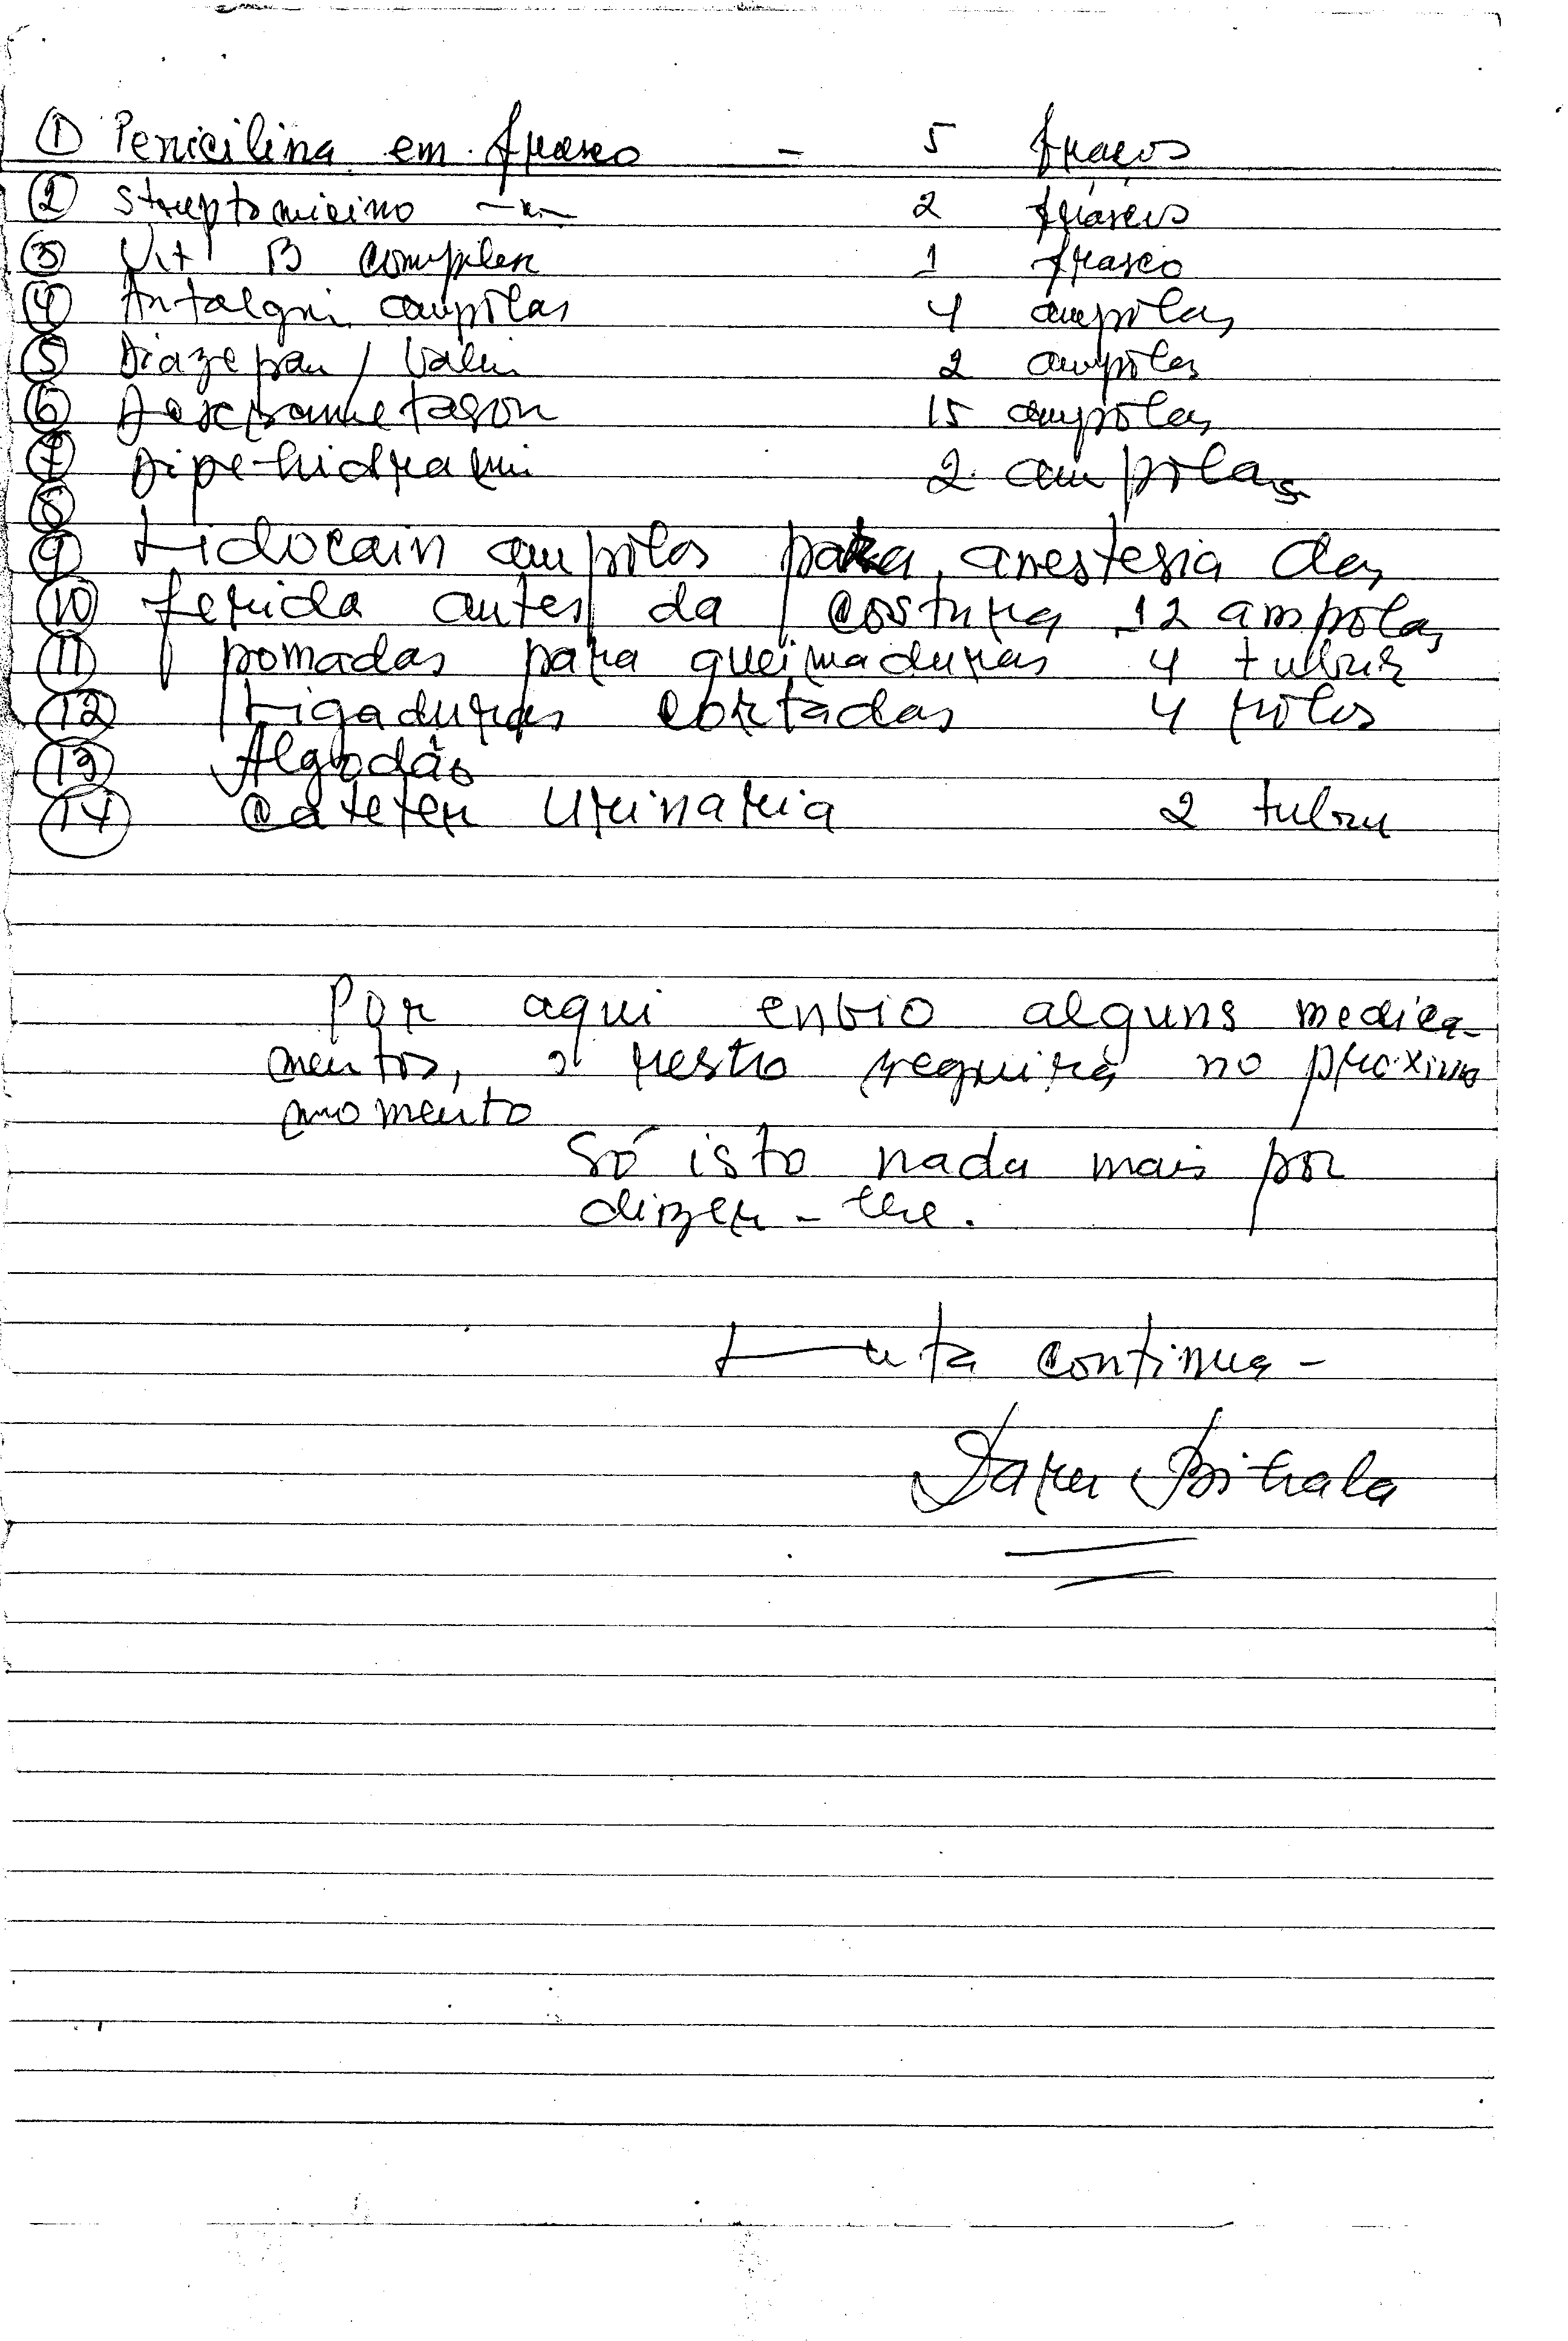 ① Penicilina em frasco - 5 frascos
② Streptomicino -"- 2 frascos
③ Vit B complex 1 frasco
④ Antalgin ampolas 4 ampolas
⑤ Diazepan / Valiu 2 ampolas
⑥ Dexametason 15 ampolas
⑦ Dipehidramin 2 ampolas
⑧
⑨ Lidocain ampolas para anestesia das
⑩ ferida antes da costura 12 ampolas
⑪ pomadas para queimaduras 4 tubus
⑫ Ligaduras cortadas 4 rolos
⑬ Algodão
⑭ Cateter Urinaria 2 tubu
Por aqui envio alguns medica-
mentos, o resto seguirá no proximo
momento
Só isto nada mais por
dizer-lhe.
Luta continua -